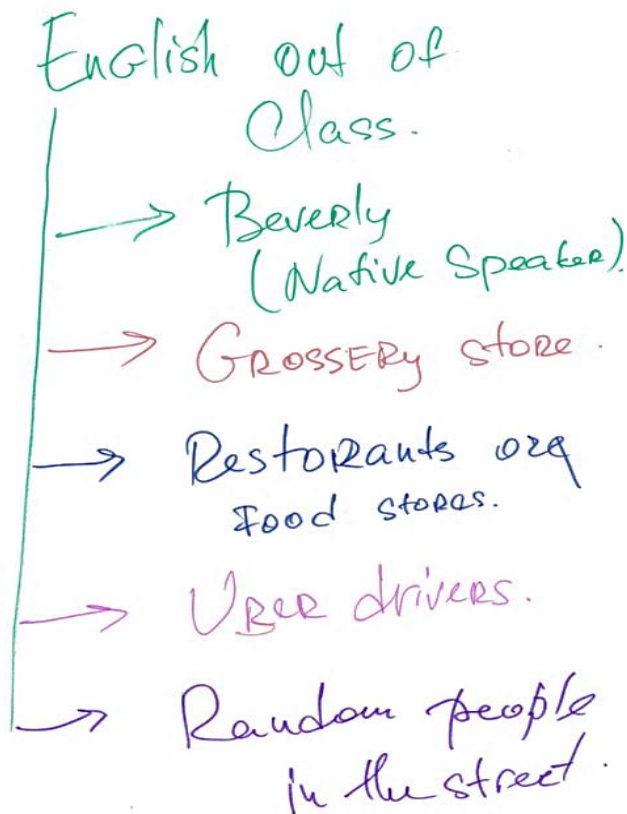 English out of
Class.
Beverly
(Native Speaker).
Grossery store.
Restorants org
Food stores.
Uber drivers.
Random people
in the street.